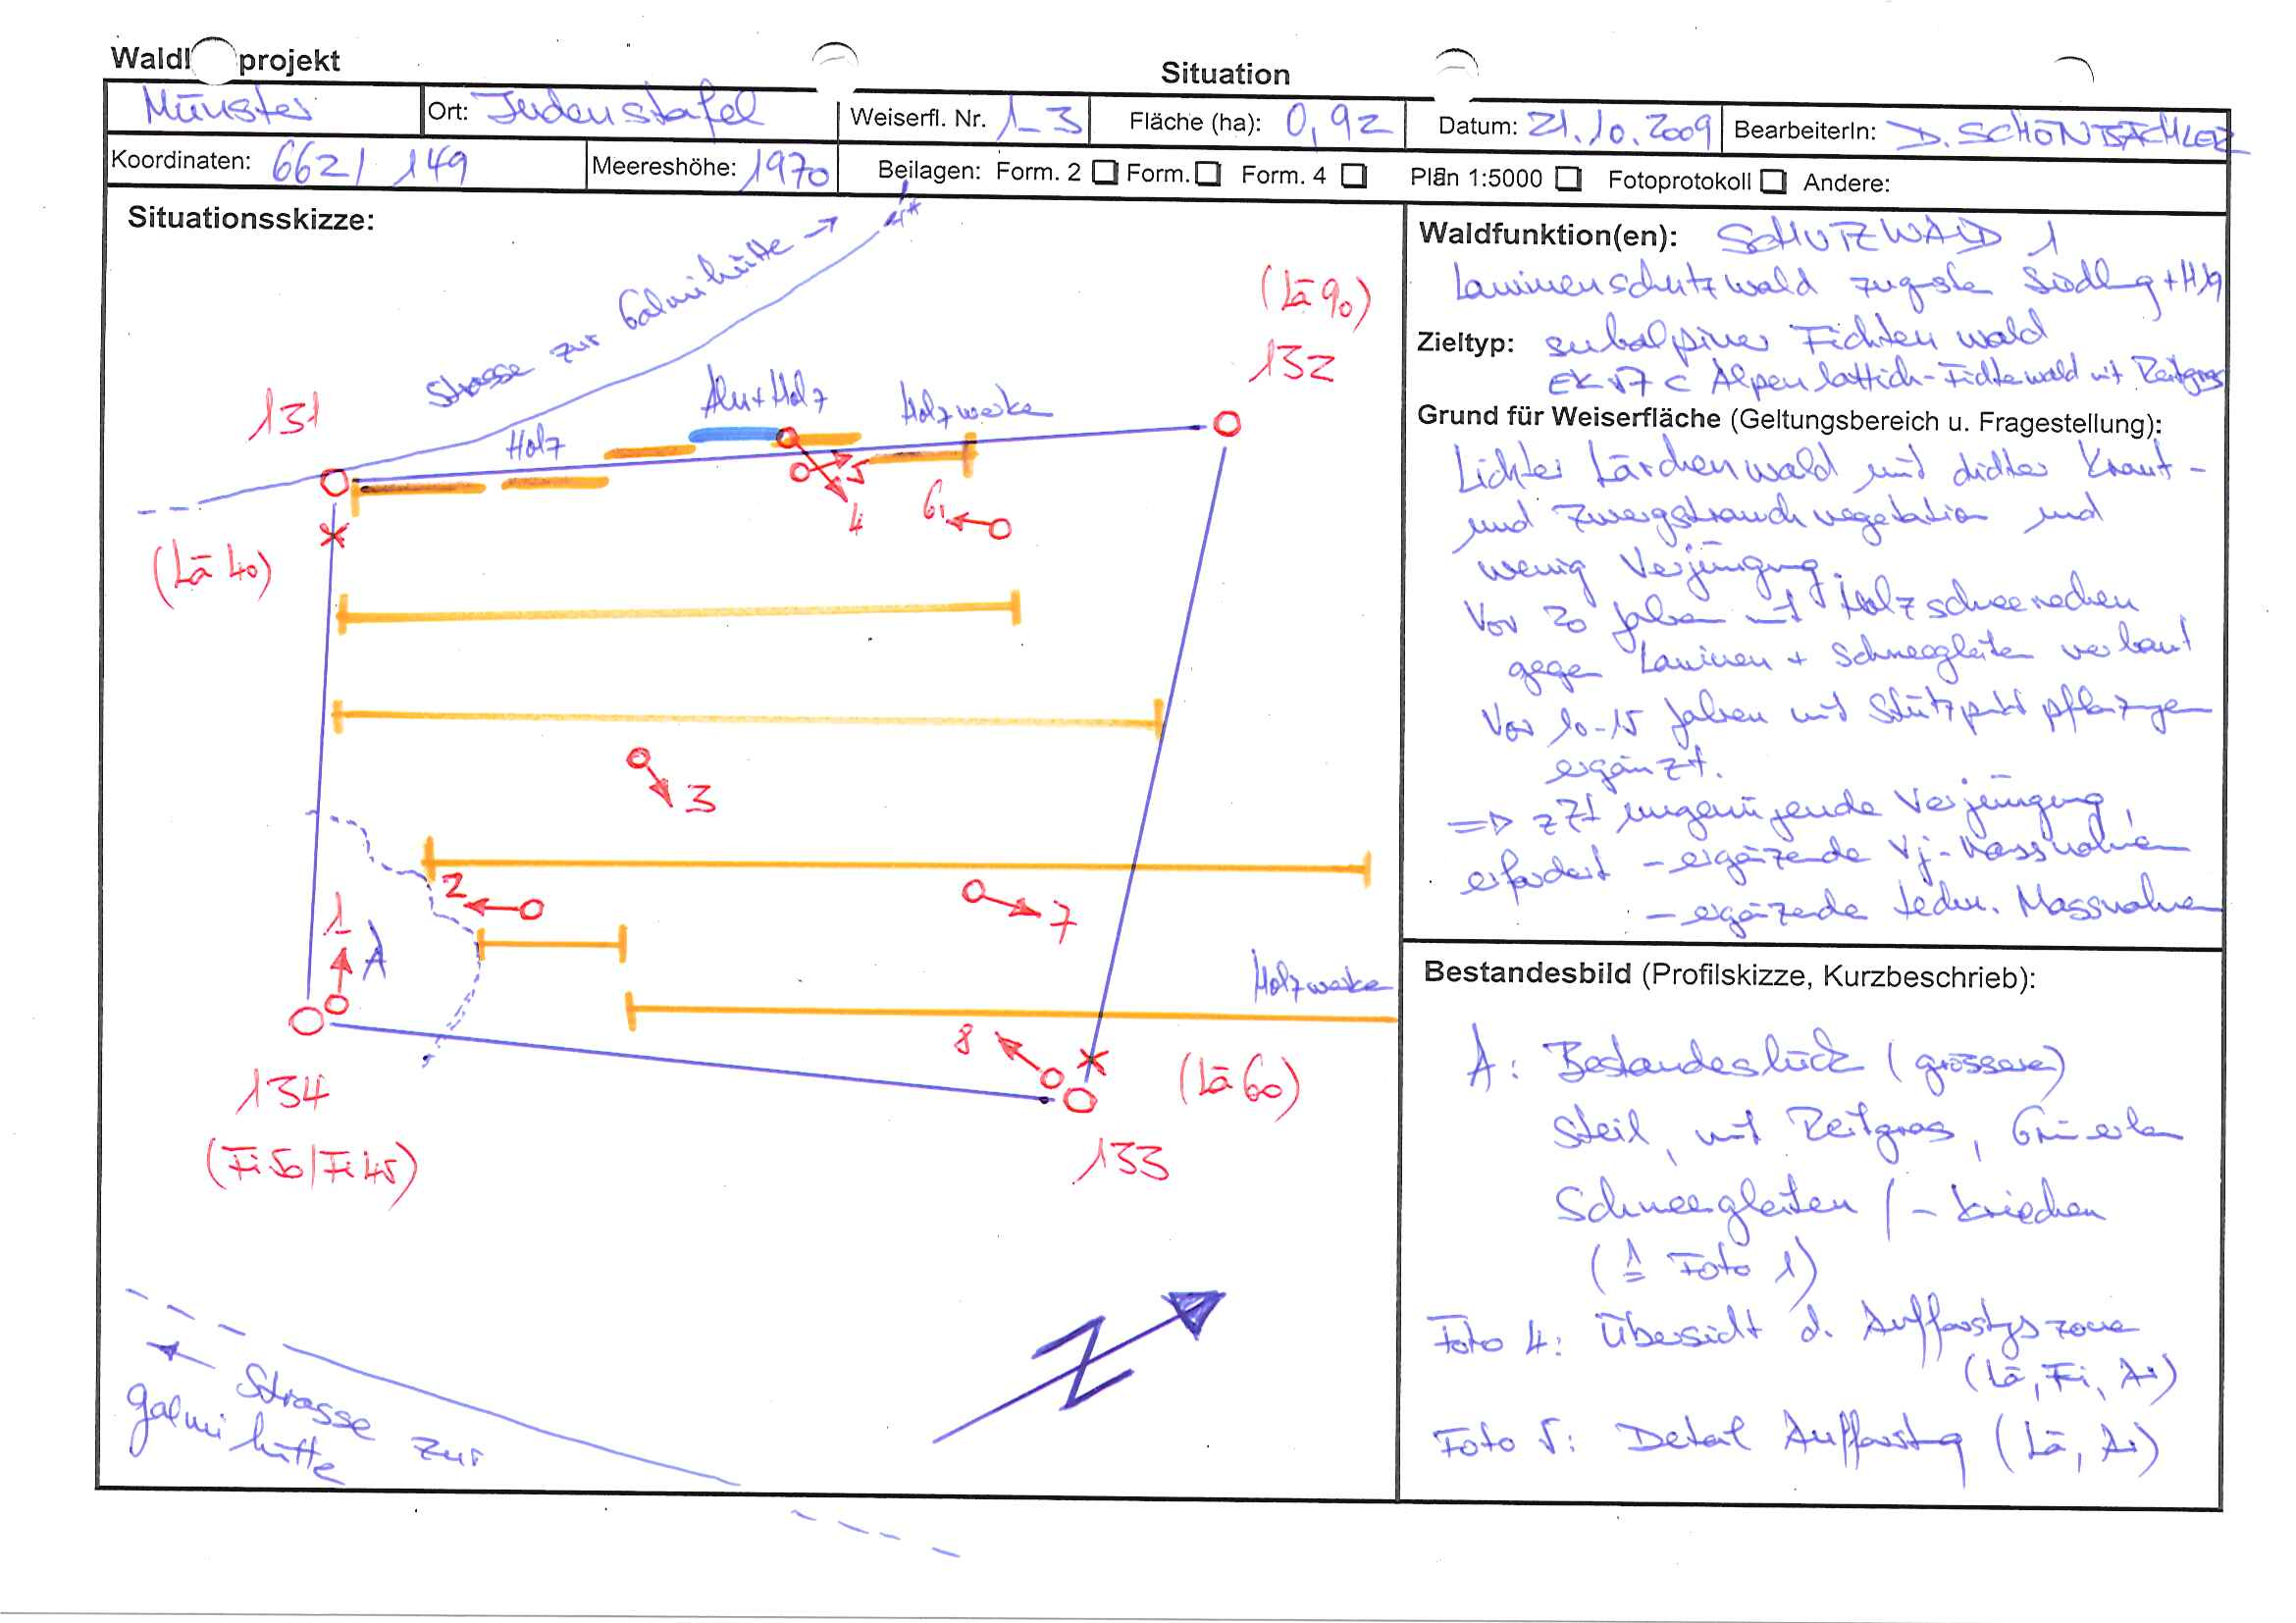 Waldl projekt
Situation
Münster
Ort: Judenstafel
Weiserfl. Nr. 1_3
Fläche (ha): 0,92
Datum: 21.10.2009
BearbeiterIn: D. SCHÖNBÄCHLER
Koordinaten: 662 / 149
Meereshöhe: 1970
Beilagen: Form. 2 Form. Form. 4 Plän 1:5000 Fotoprotokoll Andere:
Situationsskizze:
Strasse zur Galmihütte
(Lä 90)
132
131
Holz
Alu+Holz
Holzwerke
5
4
6
(Lä 40)
3
2
7
1
A
Holzwerke
8
134
(Fi 50/Fi 45)
(Lä 60)
133
Strasse zur
Galmihütte
N
Waldfunktion(en): SCHUTZWALD 1
Lawinenschutzwald Siedlg +
Zieltyp: subalpiner Fichtenwald
EK 57 C Alpenlattich-Fichtewald mit Reitgras
Grund für Weiserfläche (Geltungsbereich u. Fragestellung):
Lichter Lärchenwald mit dichter Kraut-
und Zwergstrauchvegetation und
wenig Verjüngung.
Vor 20 Jahren mit Holzschneerechen
gegen Lawinen + Schneegleiten verbaut
Vor 10-15 Jahren mit Stützpunktpflanzungen
ergänzt.
=> zZt ungenügende Verjüngung,
erfordert - ergänzende Vj-Massnahmen
- ergänzende techn. Massnahmen
Bestandesbild (Profilskizze, Kurzbeschrieb):
A: Bestandeslück (grössere)
steil, mit Reitgras, Grünerlen
Schneegleiten / -kriechen
(≙ Foto 1)
Foto 4: Übersicht d. Aufforstgszone
(Lä, Fi, Ar)
Foto 5: Detail Aufforstg (Lä, Ar)